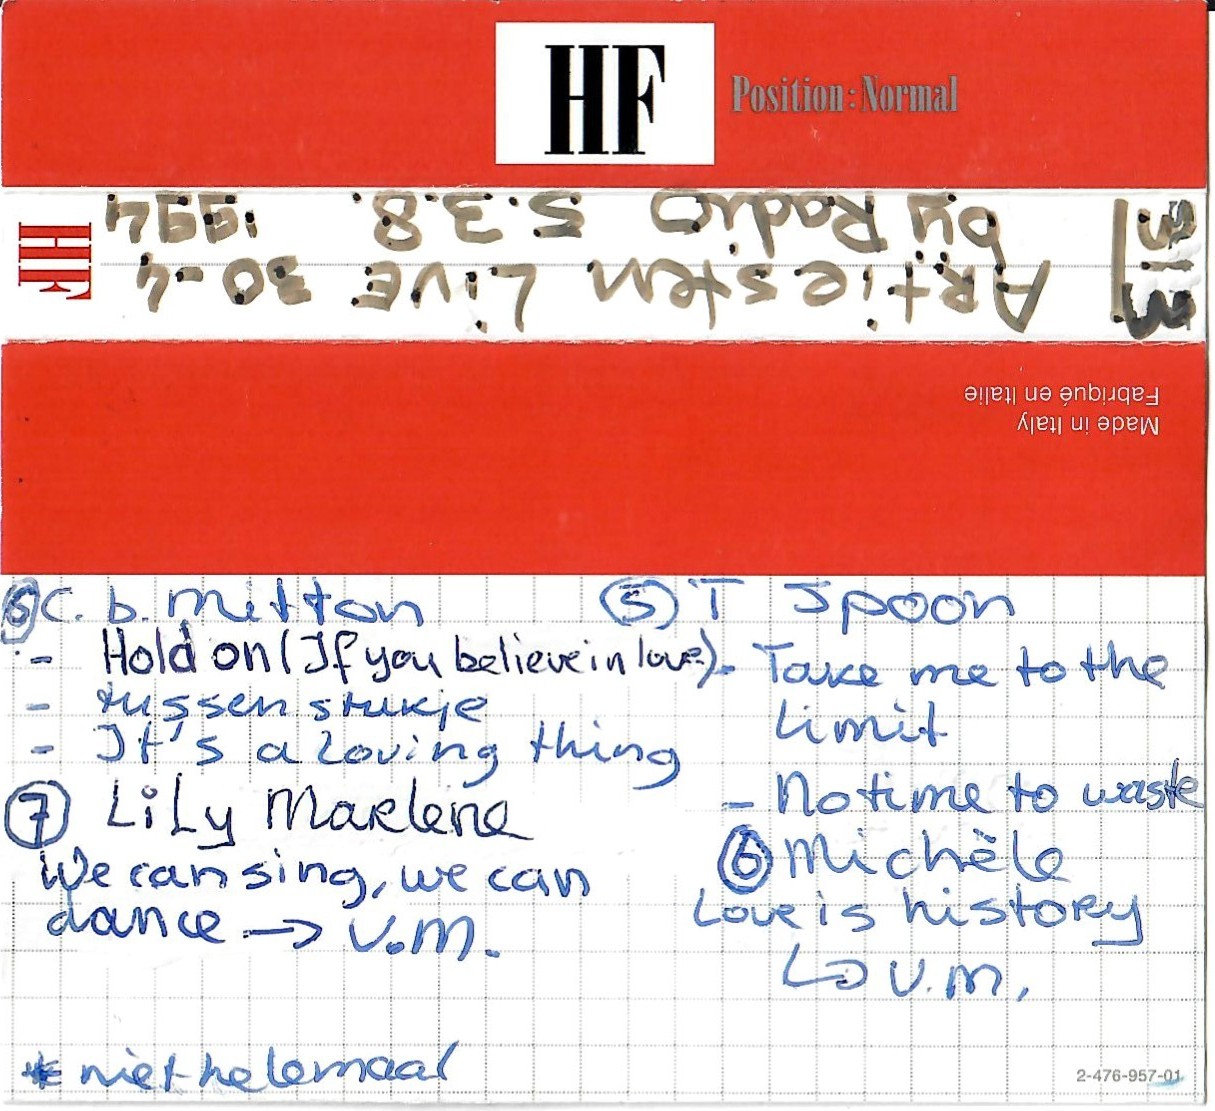 HF
Position: Normal
Artiesten Live 30-4
by Radio 5.3.8. 1994
HF
Made in Italy
Fabriqué en Italie
⑥ C. B. Milton
- Hold on (If you believe in love)
- tussen stukje
- It's a loving thing
⑦ Lily Marlene
We can sing, we can
dance → V.M.
⑤ T Spoon
- Take me to the
limit
- No time to waste
⑥ Michèle
Love is history
↳ V.M.
* niet helemaal
2-476-957-01